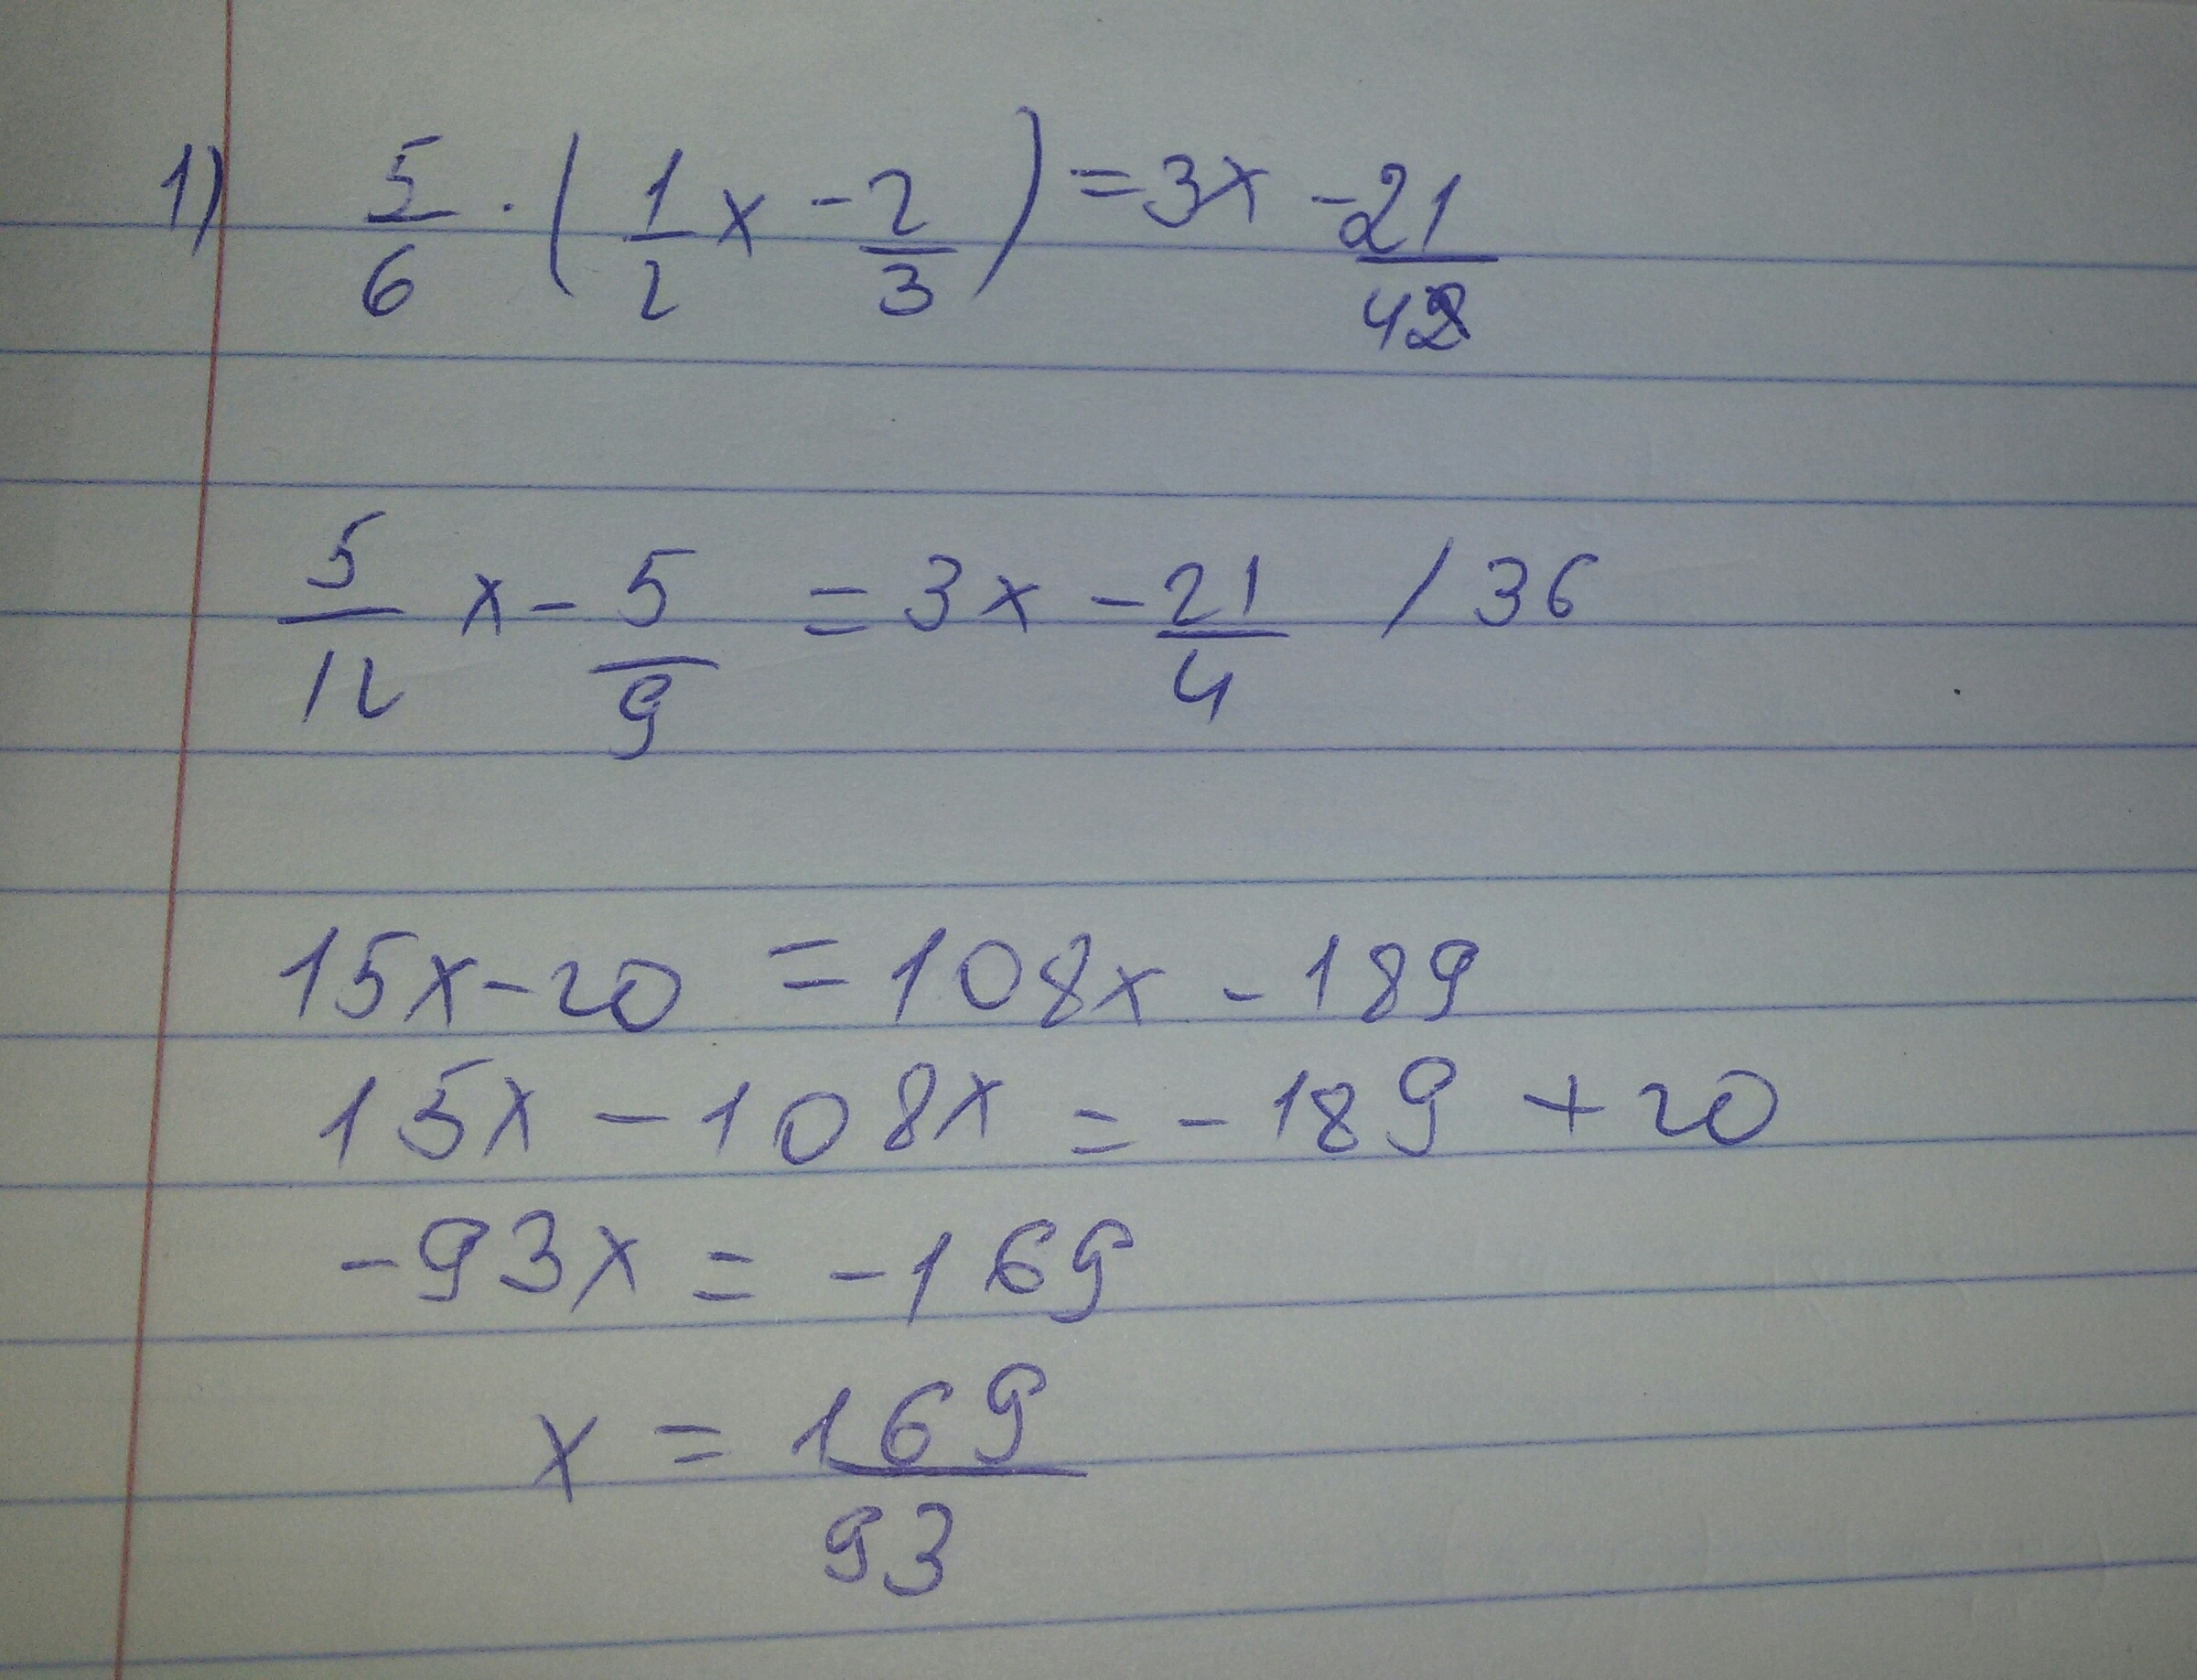 1) 5/6 · (1/2 x - 2/3) = 3x - 21/42
5/12 x - 5/9 = 3x - 21/4 / 36
15x - 20 = 108x - 189
15x - 108x = - 189 + 20
- 93x = - 169
x = 169/93